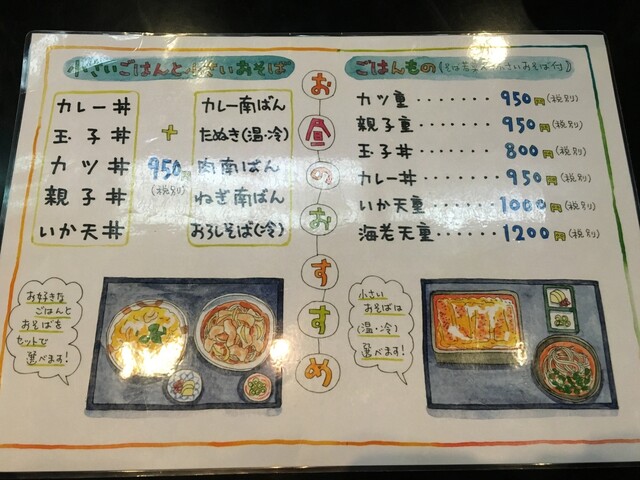 小さいごはんと小さいおそば
カレー丼
玉子丼
カツ丼
親子丼
いか天丼
+
950円
(税別)
カレー南ばん
たぬき(温・冷)
肉南ばん
ねぎ南ばん
おろしそば(冷)
お好きな
ごはんと
おそばを
セットで
選べます!
お昼のおすすめ
ごはんもの
さいおそば付)
カツ重・・・・・・・950円(税別)
親子重・・・・・・・950円(税別)
玉子丼・・・・・・・800円(税別)
カレー丼・・・・・・950円(税別)
いか天重・・・・・・1000円(税別)
海老天重・・・・・・1200円(税別)
小さい
おそばは
(温・冷)
選べます!